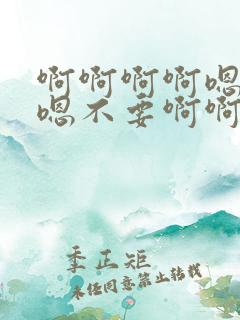 啊啊啊啊嗯
嗯不要啊啊
季正矩
未经同意禁止转载